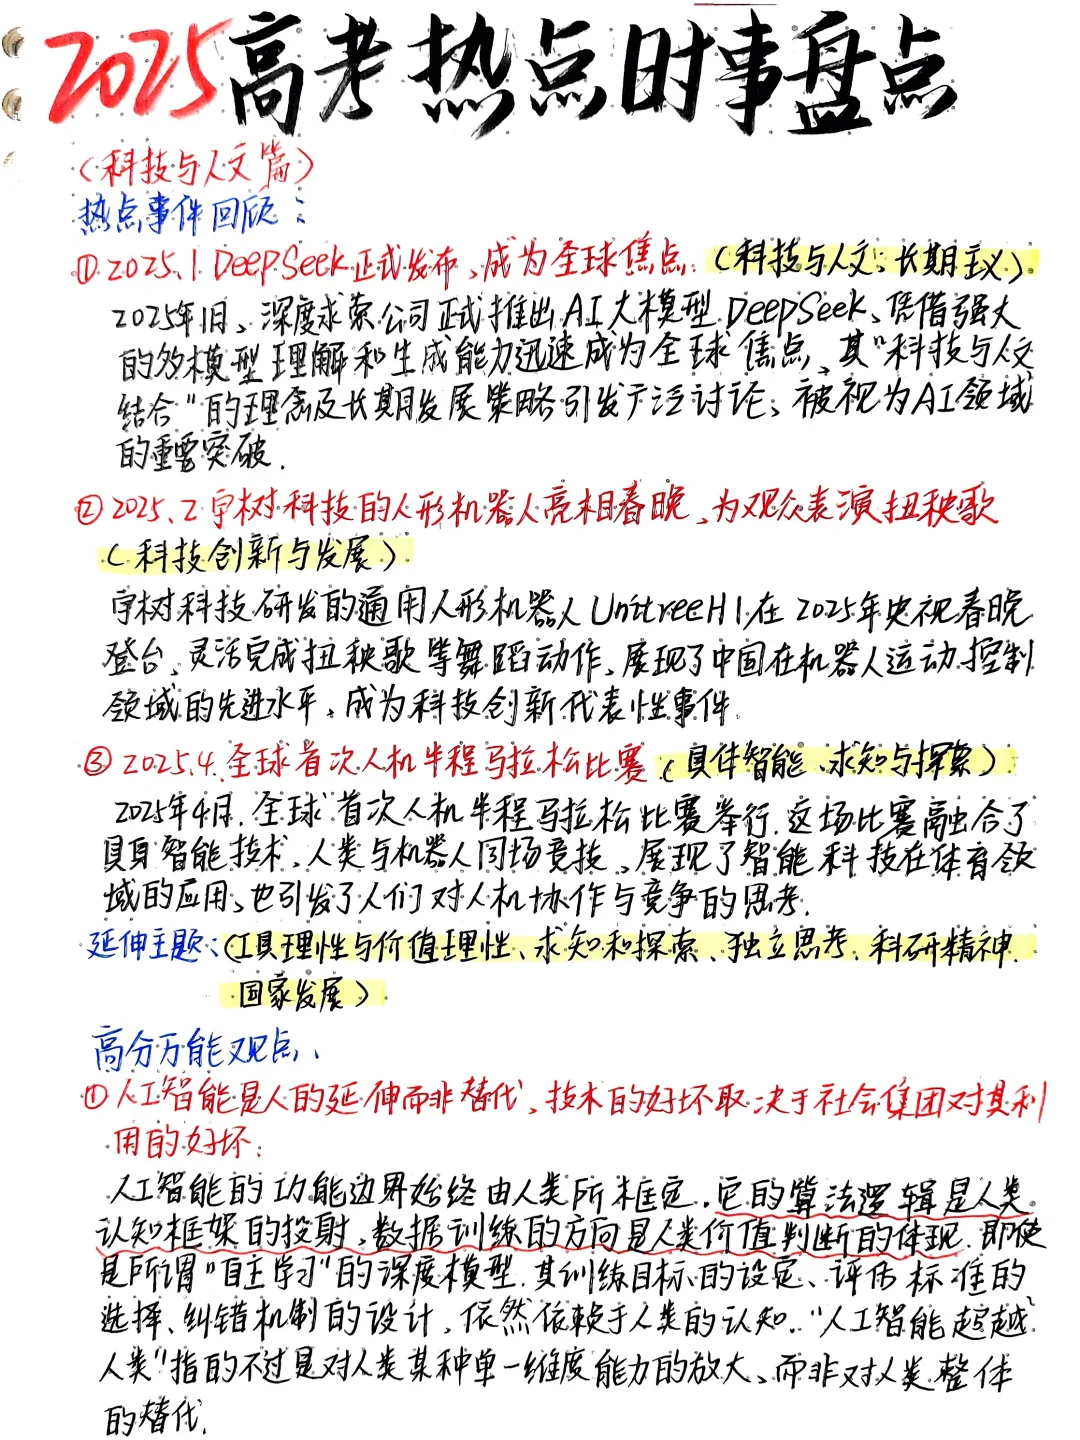 2025高考热点时事盘点
(科技与人文篇)
热点事件回顾:
① 2025.1 DeepSeek正式发布,成为全球焦点.(科技与人文、长期主义)
2025年1月,深度求索公司正式推出AI大模型DeepSeek、凭借强大
的多模型理解和生成能力迅速成为全球焦点、其"科技与人文
结合"的理念及长期发展策略引发广泛讨论,被视为AI领域
的重要突破.
② 2025.2 宇树科技的人形机器人亮相春晚、为观众表演扭秧歌
(科技创新与发展)
宇树科技研发的通用人形机器人UnitreeH1,在2025年央视春晚
登台、灵活完成扭秧歌等舞蹈动作,展现了中国在机器人运动控制
领域的先进水平,成为科技创新代表性事件.
③ 2025.4.全球首次人机半程马拉松比赛(具体智能、求知与探索)
2025年4月.全球首次人机半程马拉松比赛举行.这场比赛融合了
具身智能技术,人类与机器人同场竞技、展现了智能科技在体育领
域的应用、也引发了人们对人机协作与竞争的思考.
延伸主题:(工具理性与价值理性、求知和探索、独立思考、科研精神.
国家发展)
高分万能观点、
① 人工智能是人的延伸而非替代、技术的好坏取决于社会集团对其利
用的好坏:
人工智能的功能边界始终由人类所框定.它的算法逻辑是人类
认知框架的投射,数据训练的方向是人类价值判断的体现.即使
是所谓"自主学习"的深度模型.其训练目标的设定、评估标准的
选择、纠错机制的设计,依然依赖于人类的认知."人工智能超越
人类"指的不过是对人类某种单一维度能力的放大、而非对人类整体
的替代.